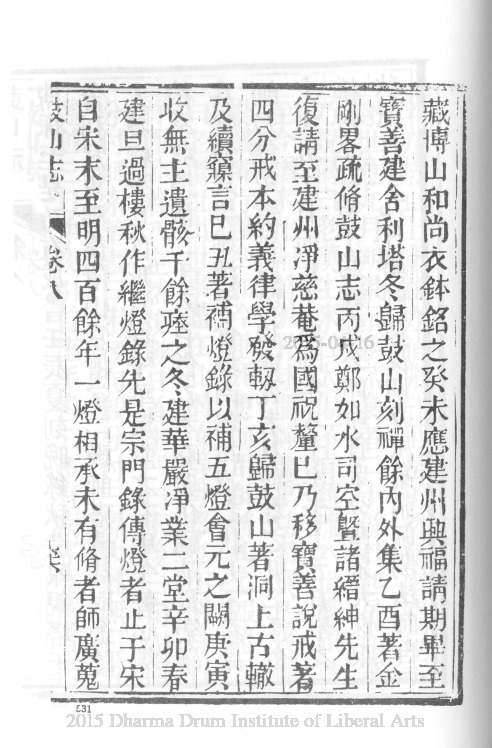 藏博山和尚衣鉢銘之癸未應建州興福請期畢至
寶善建舍利塔冬歸鼓山刻禪餘內外集乙酉著金
剛畧疏脩鼓山志丙戌鄭如水司空曁諸縉紳先生
復請至建州淨慈菴爲國祝釐巳乃移寶善說戒著
四分戒本約義律學發軔丁亥歸鼓山著洞上古轍
及續寱言巳丑著補燈錄以補五燈會元之闕庚寅
收無主遺骸千餘瘞之冬建華嚴淨業二堂辛卯春
建旦過樓秋作繼燈錄先是宗門錄傳燈者止于宋
自宋末至明四百餘年一燈相承未有脩者師廣蒐
鼓山志 卷八
531
2015 Dharma Drum Institute of Liberal Arts